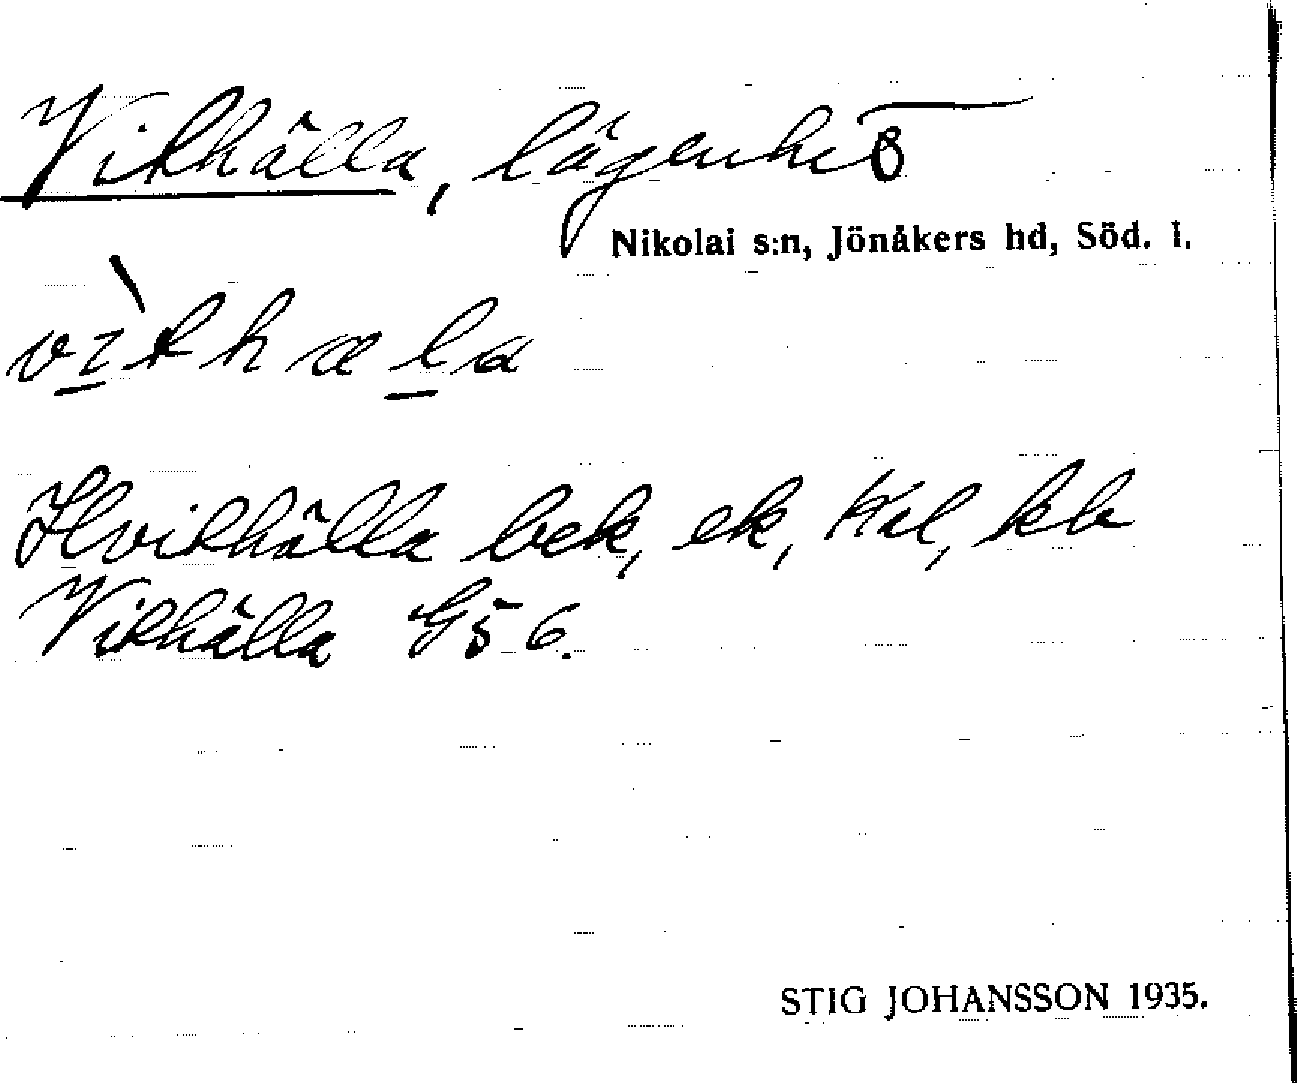 Vithälla, lägenhet
Nikolai s:n, Jönåkers hd, Söd. l.
vìthæla
Hvithälla bek, ek, kb
Vithälla
STIG JOHANSSON 1935.